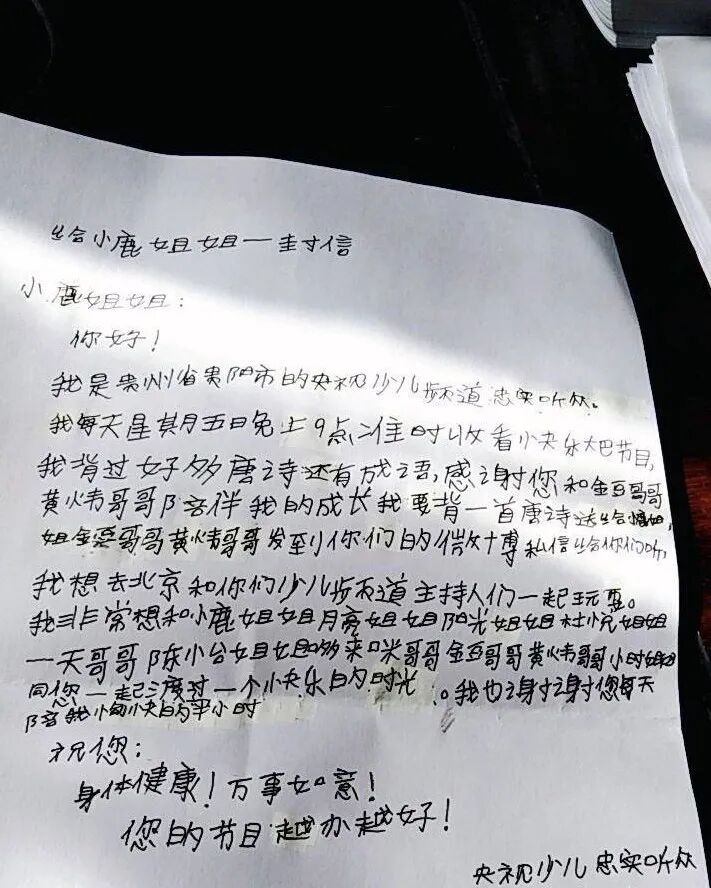 给小鹿姐姐一封信
小鹿姐姐:
你好!
我是贵州省贵阳市的央视少儿频道忠实听众。
我每天星期五日晚上9点准时收看小快乐大巴节目,
我背过好多唐诗还有成语,感谢您和金豆哥哥
黄炜哥哥陪伴我的成长我要背一首唐诗送给小鹿姐
姐金豆哥哥黄炜哥哥发到你们的微博私信给你们听,
我想去北京和你们少儿频道主持人们一起玩耍。
我非常想和小鹿姐姐月亮姐姐阳光姐姐杜悦姐姐
一天哥哥陈小台姐姐哆来咪哥哥金豆哥哥黄炜哥哥小时姐姐
同您一起度过一个小快乐的时光。我也谢谢您每天
陪我小快的半小时
祝您:
身体健康!万事如意!
您的节目越办越好!
央视少儿忠实听众